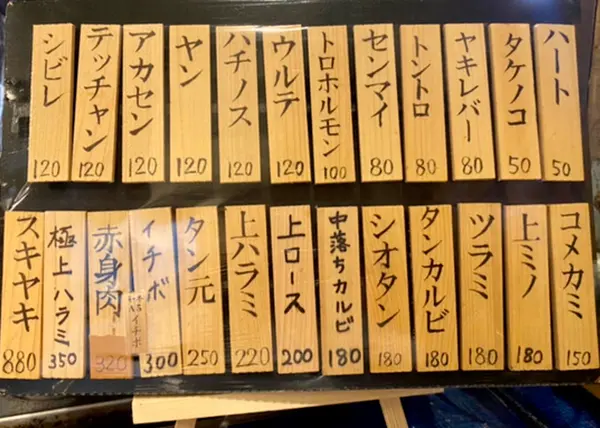 ハート 50
タケノコ 50
ヤキレバー 80
トントロ 80
センマイ 80
トロホルモン 100
ウルテ 120
ハチノス 120
ヤン 120
アカセン 120
テッチャン 120
シビレ 120
コメカミ 150
上ミノ 180
ツラミ 180
タンカルビ 180
シオタン 180
中落ちカルビ 180
上ロース 200
上ハラミ 220
タン元 250
イチボ 300
イチボ
赤身肉 320
極上ハラミ 350
スキヤキ 880